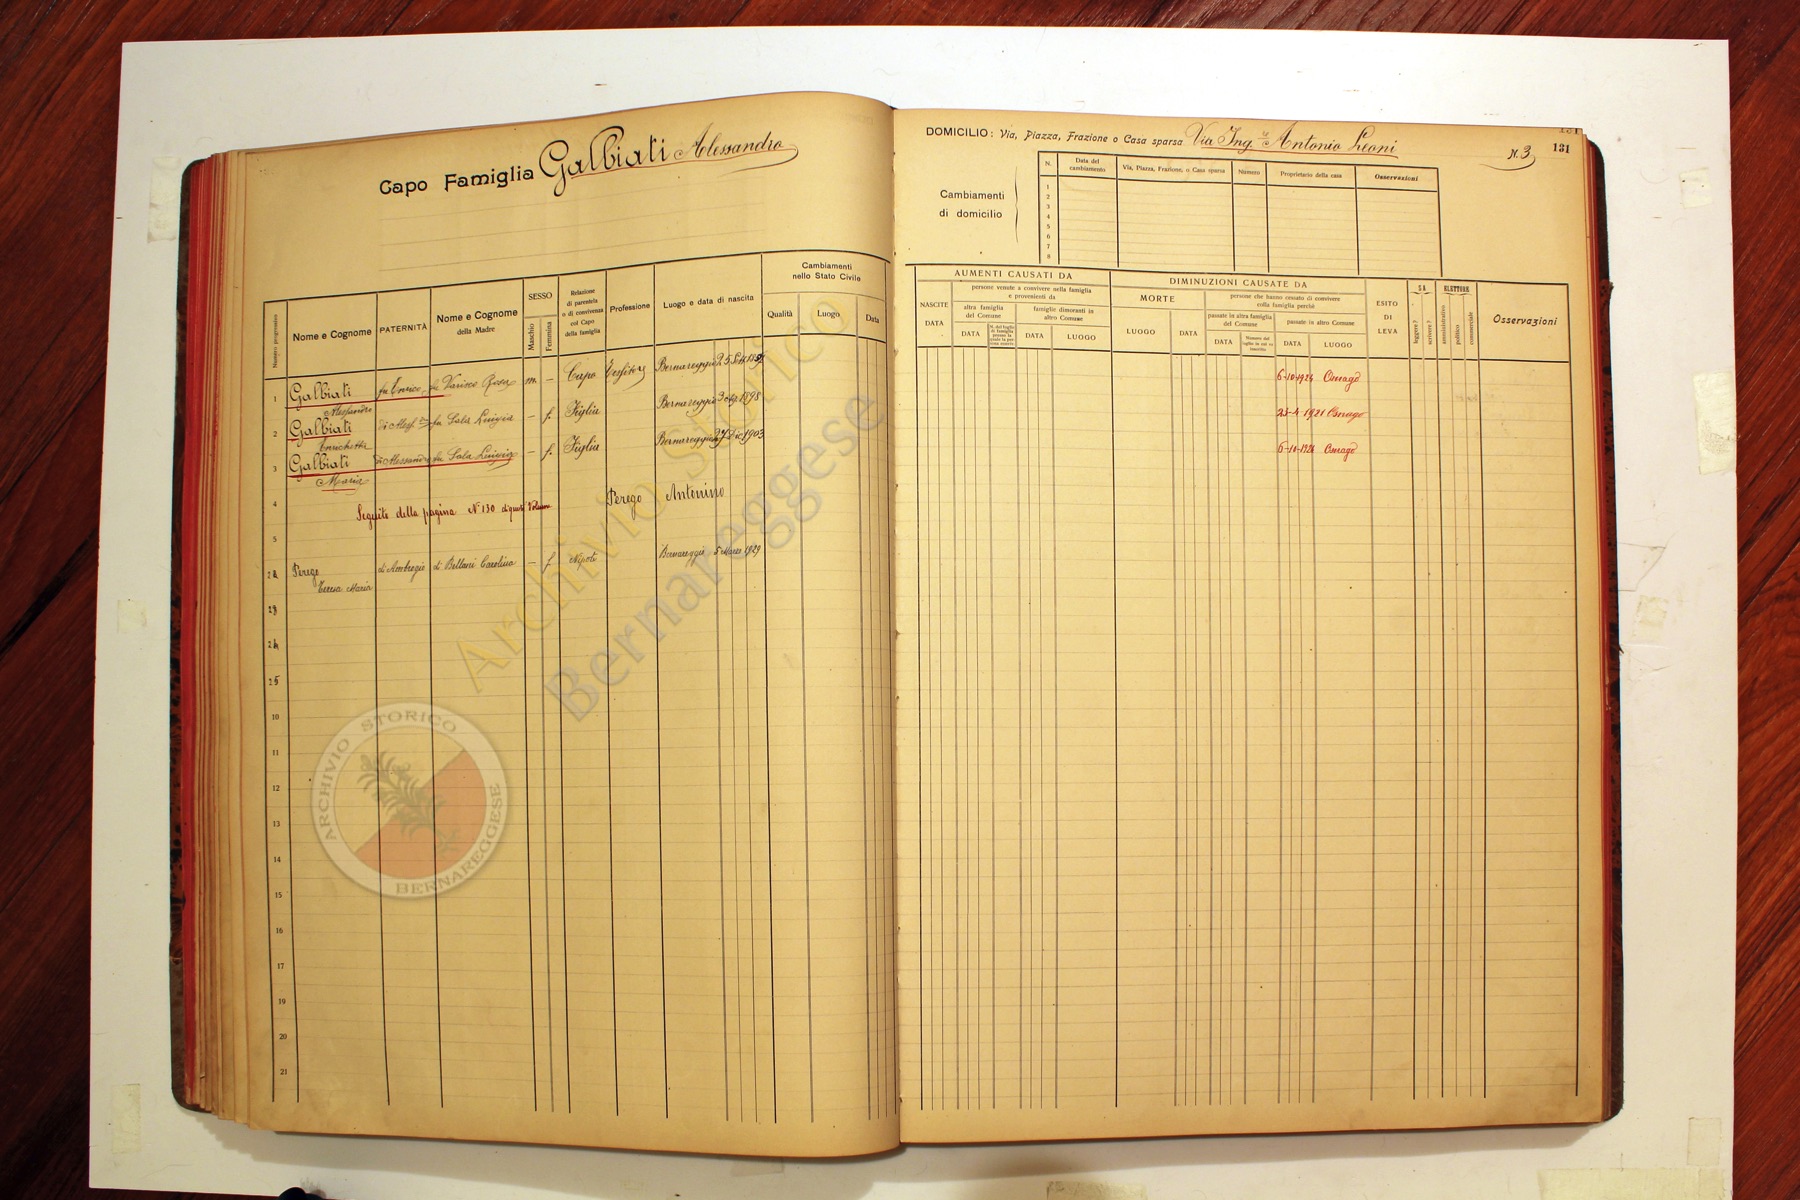 Capo Famiglia Galbiati Alessandro
Numero progressivo
Nome e Cognome
PATERNITÀ
Nome e Cognome
della Madre
SESSO
Maschio
Femmina
Relazione
di parentela
o di convivenza
col Capo
della famiglia
Professione
Luogo e data di nascita
Cambiamenti
nello Stato Civile
Qualità
Luogo
Data
1 Galbiati Alessandro fu Enrico fu Varisco Rosa m. — Capo Bernareggio
2 Galbiati Enrichetta di Aless. fu Sala Luigia — f. Figlia Bernareggio 3 1898
3 Galbiati Maria di Alessandro fu Sala Luigia — f. Figlia Bernareggio 27 Dic 1903
4 Perego Antonino
Seguito della pagina N° 130 di questo Volume
5
22 Perego Teresa Maria di Ambrogio di Bellani Carolina — f. Nipoti Bernareggio 5 Marzo 1929
23
24
25
10
11
12
13
14
15
16
17
18
19
20
21
DOMICILIO: Via, Piazza, Frazione o Casa sparsa Via Ing.re Antonio Leoni
N. 3
131
131
Cambiamenti
di domicilio
N.
Data del
cambiamento
Via, Piazza, Frazione, o Casa sparsa
Numero
Proprietario della casa
Osservazioni
1
2
3
4
5
6
7
8
AUMENTI CAUSATI DA
NASCITE
DATA
persone venute a convivere nella famiglia
e provenienti da
altra famiglia
del Comune
DATA
famiglie dimoranti in
altro Comune
DATA
LUOGO
DIMINUZIONI CAUSATE DA
MORTE
LUOGO
DATA
persone che hanno cessato di convivere
colla famiglia perchè
passate in altra famiglia
del Comune
DATA
Numero del
foglio in cui si
inscritto
passate in altro Comune
DATA
LUOGO
ESITO
DI
LEVA
SA
leggere?
scrivere?
ELETTORE
amministrativo
politico
commerciale
Osservazioni
6-10-1924 Osnago
23-4-1921 Osnago
6-10-1924 Osnago
Archivio Storico
Bernareggese
ARCHIVIO STORICO
BERNAREGGESE